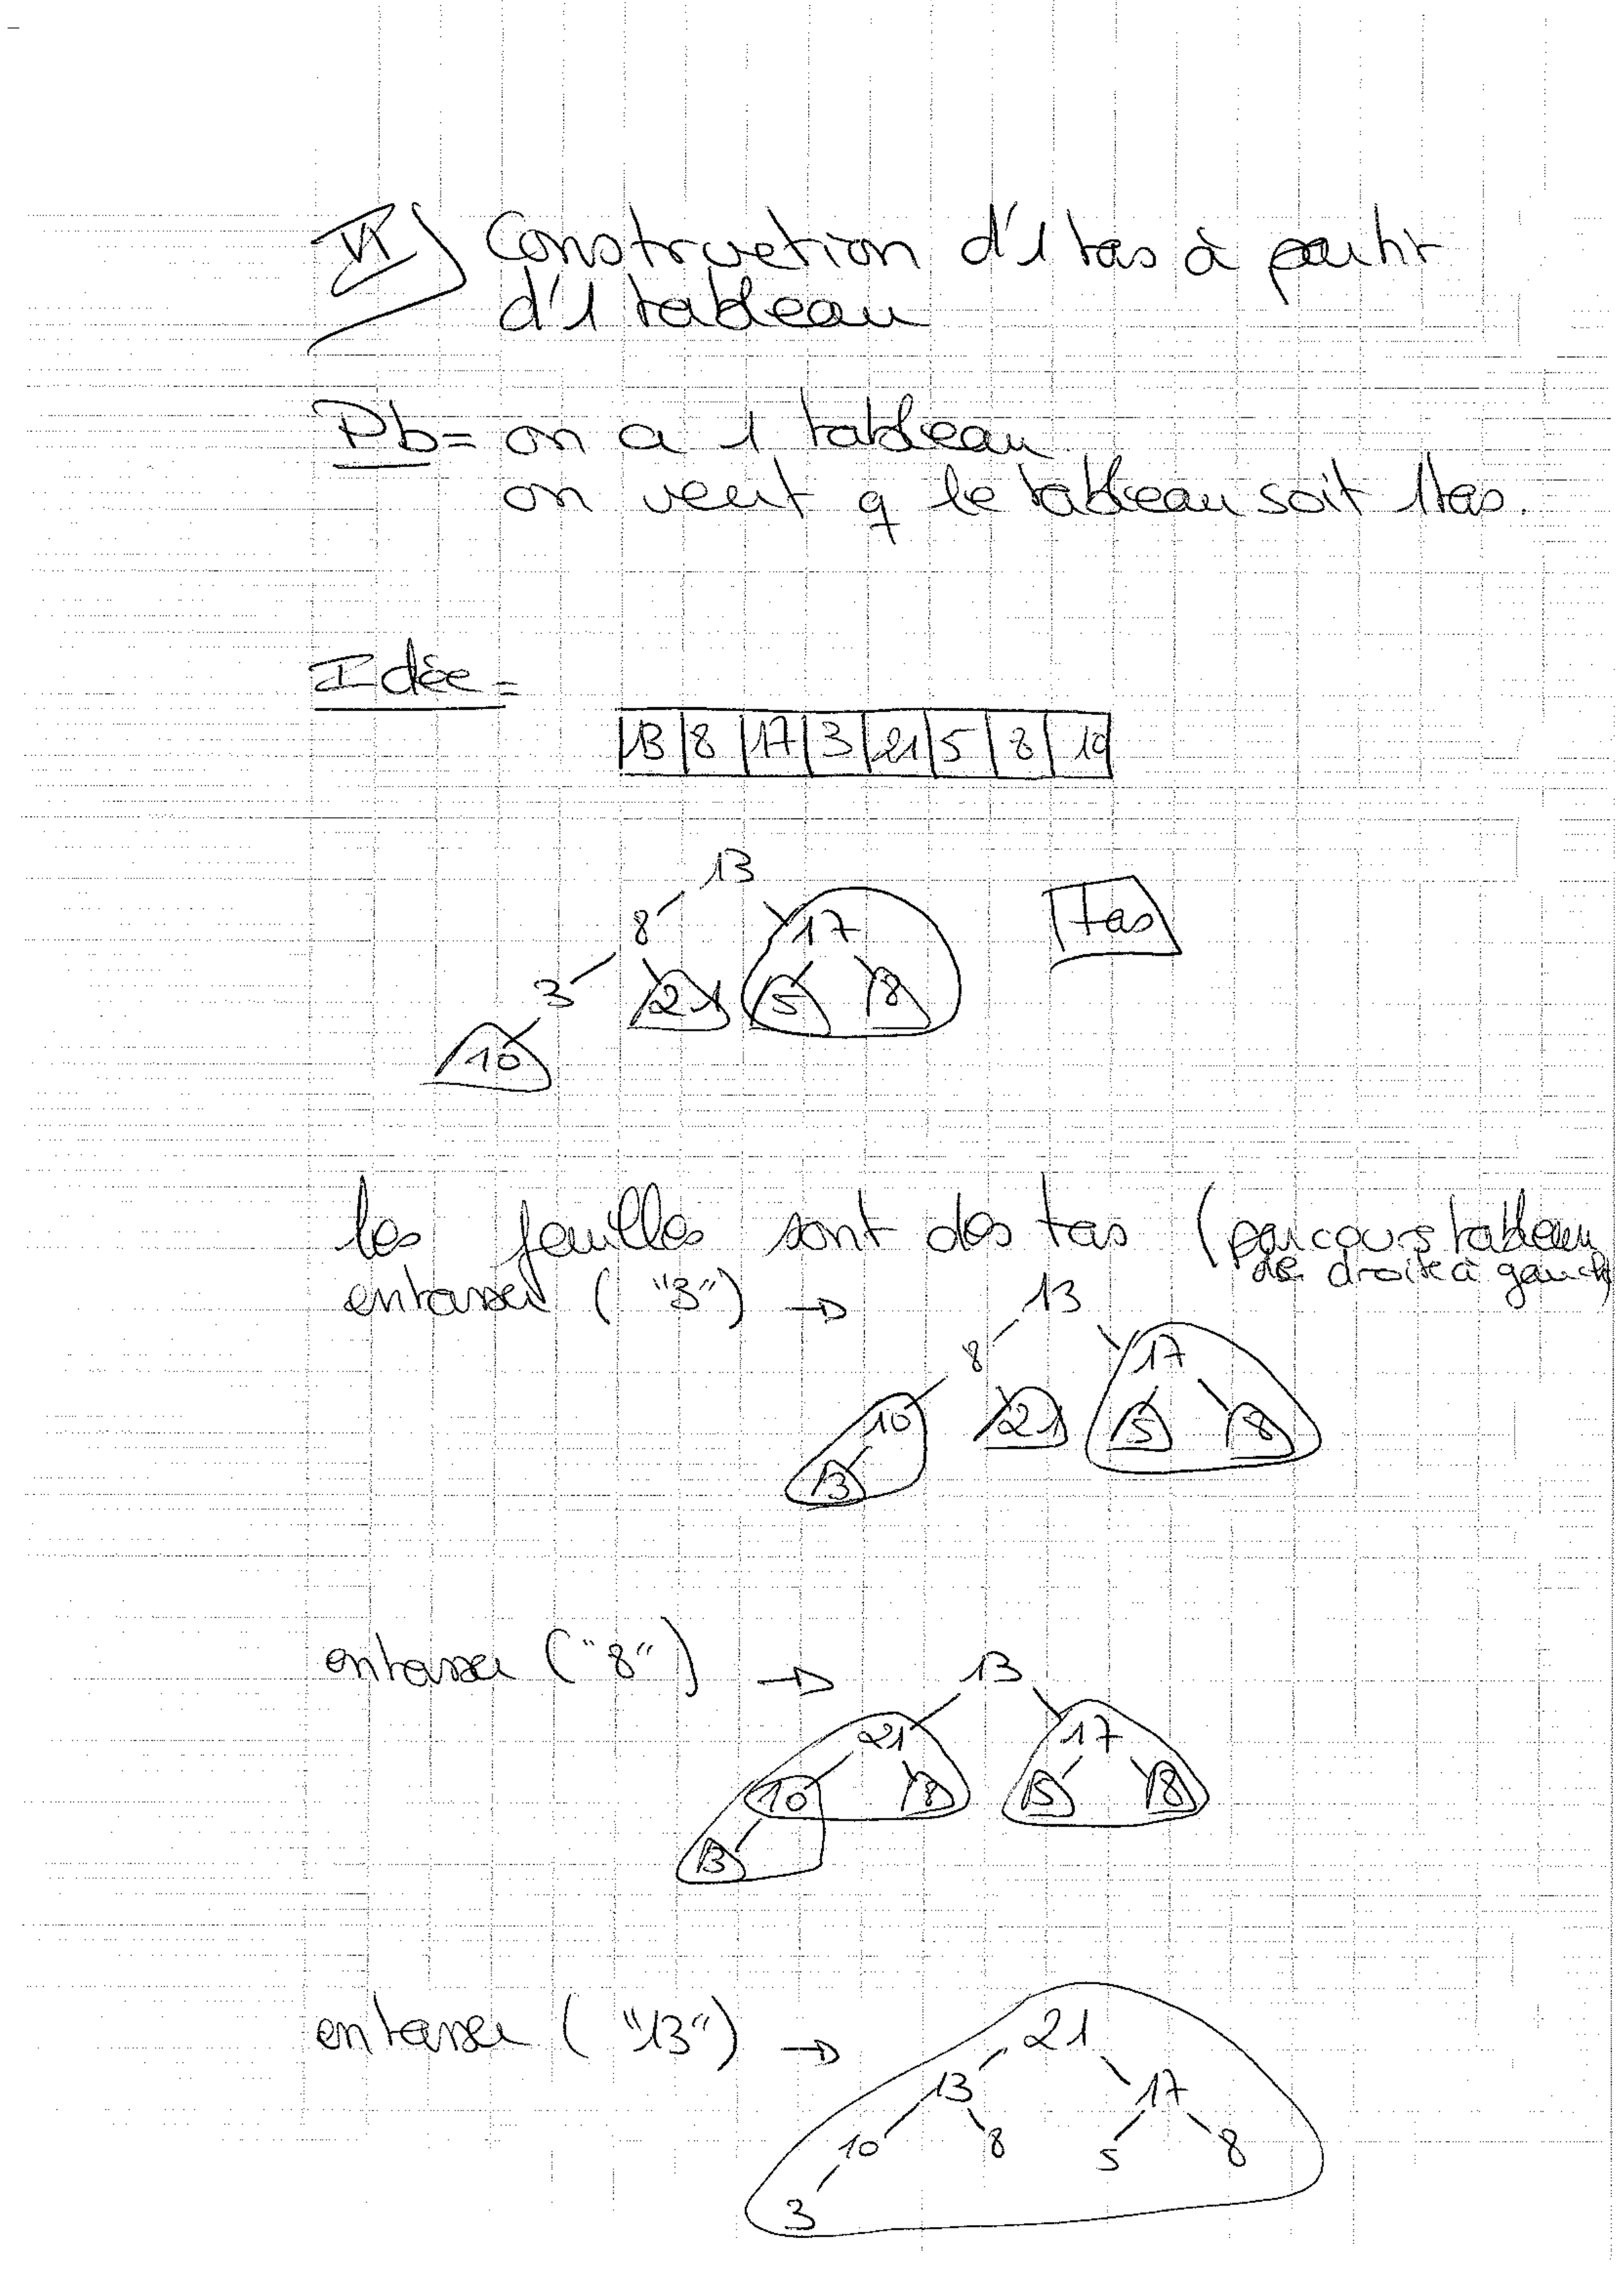 VI) Construction d'1 tas à partir
d'1 tableau
Pb = on a 1 tableau
on veut q le tableau soit 1 tas.
Idée =
13 | 8 | 17 | 3 | 21 | 5 | 8 | 10
13
8 17 Tas
3 21 5 8
10
les feuilles sont des tas (parcours tableau
de droite à gauche)
entasser ("3") → 13
8 17
10 21 5 8
3
entasser ("8") → 13
21 17
10 8 5 8
3
entasser ("13") → 21
13 17
10 8 5 8
3